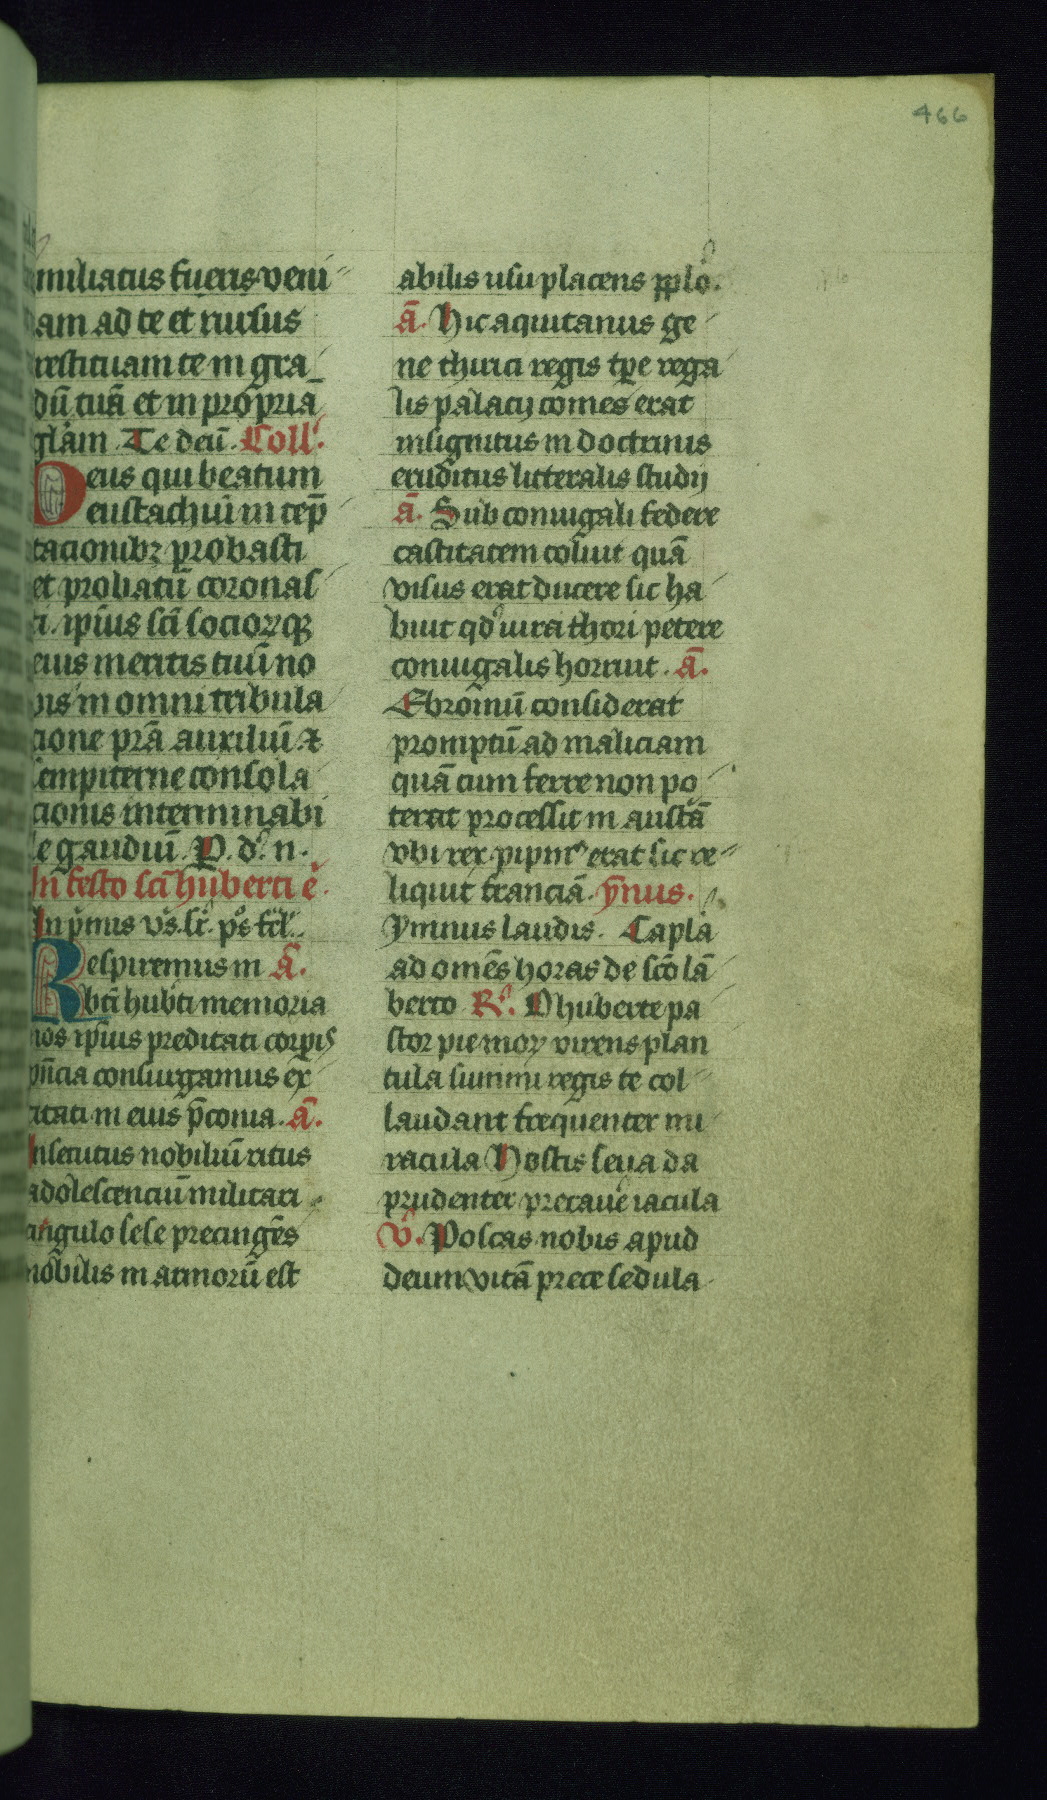 466
miliatus fueris veni
am ad te et rursus
restituam te in gra
dū tuā et in propriā
glām Te deū. Coll'.
Deus qui beatum
eustachiū in tēp
tacionibꝫ probasti
et probatū coronas
ti. ipīus scī socioꝝqꝫ
eius meritis tuū no
bis in omni tribula
cione prā auxiliū ⁊
sempiterne consola
cionis interminabi
le gaudiū. P. d. n.
In festo scī huberti ē.
In pͥmis vs. sr. ps. fcl'.
Respiremus in Ā.
btī hubti memoria
nos ipīus preditati corpis
pn̄cia consurgamus ex
citati in eius p̄conia. Ā.
Insecutus nobiliū ritus
adolescenciū militari
cingulo sese precingēs
nobilis in armorū est
abilis usu placens pplo.
Ā. Hic aquitanus ge
ne thirici regis tp̄e rega
lis palacij comes erat
insignitus in doctrinis
eruditus litteralis studij
Ā. Sub coniugali federe
castitatem coluit quā
visus erat ducere sic ha
buit qd' iura thori petere
coniugalis horruit. Ā.
Ebroinū considerat
promptū ad maliciam
quā cum ferre non po
terat processit in austā
vbi rex pipin' erat sic re
liquit franciā. ym̄us.
Ymnus laudis. Capla
ad omēs horas de scō lā
berto R'. O huberte pa
stor pie moꝝ virens plan
tula summi regis te col
laudant frequenter mi
racula Hostis seua da
prudenter precaue iacula
V'. Poscas nobis apud
deum vitā prece sedula